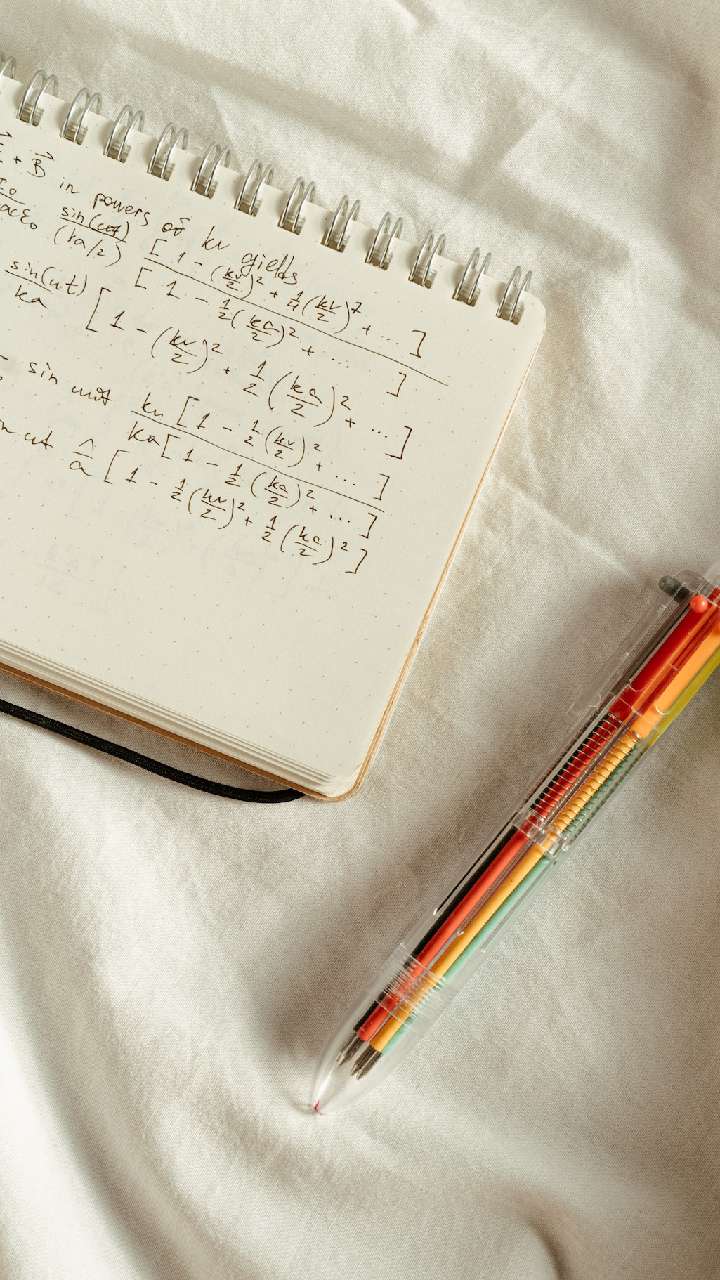 + B⃗ in powers of kr yields
sin(ωt) / (ka/2) [1 - (kr/2)² + 1/4(kr/2)² + ...] / [1 - 1/2(ka/2)² + ...]
sin(ωt) / ka [1 - (kr/2)² + 1/2(ka/2)² + ...]
sin ωt kr[1 - 1/2(kr/2)² + ...] / ka[1 - 1/2(ka/2)² + ...]
ωt r/a [1 - 1/2(kr/2)² + 1/2(ka/2)²]